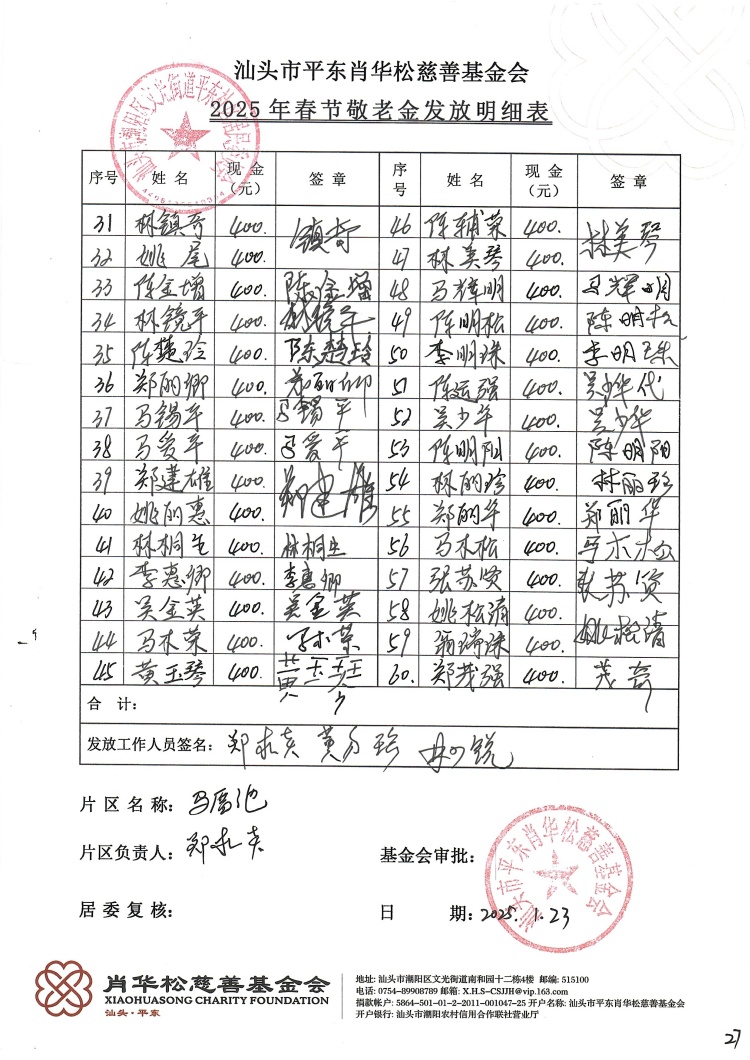 汕头市平东肖华松慈善基金会
2025年春节敬老金发放明细表
序号 姓名 现金(元) 签章 序号 姓名 现金(元) 签章
31 林镇奇 400. 镇奇 46 陈辅荣 400.
32 姚尾 400. 47 林美琴 400. 林美琴
33 陈金增 400. 陈金增 48 马辉明 400. 马辉明
34 林镜平 400. 林镜平 49 陈明松 400. 陈明松
35 陈楚玲 400. 陈楚玲 50 李明珠 400. 李明珠
36 郑丽卿 400. 郑丽卿 51 陈远强 400. 吴少华代
37 马锡平 400. 马锡平 52 吴少华 400. 吴少华
38 马爱平 400. 马爱平 53 陈明阳 400. 陈明阳
39 郑建雄 400. 郑建雄 54 林丽珍 400. 林丽珍
40 姚丽惠 400. 55 郑丽华 400. 郑丽华
41 林桐生 400. 林桐生 56 马木松 400. 马木松
42 李惠卿 400. 李惠卿 57 张苏贤 400. 张苏贤
43 吴金英 400. 吴金英 58 姚松清 400. 姚松清
44 马木荣 400. 马木荣 59 400.
45 黄玉琴 400. 黄玉琴 60. 郑茂强 400.
合计:
发放工作人员签名:
片区名称:
片区负责人:
基金会审批:
居委复核:
日期: 2025.1.23
汕头市平东肖华松慈善基金会
肖华松慈善基金会
XIAOHUASONG CHARITY FOUNDATION
汕头·平东
地址: 汕头市潮阳区文光街道南和园十二栋4楼 邮编: 515100
电话: 0754-89908789 邮箱: X.H.S-CSJJH@vip.163.com
捐款帐户: 5864-501-01-2-2011-001047-25 开户名称: 汕头市平东肖华松慈善基金会
开户银行: 汕头市潮阳农村信用合作联社营业厅
27